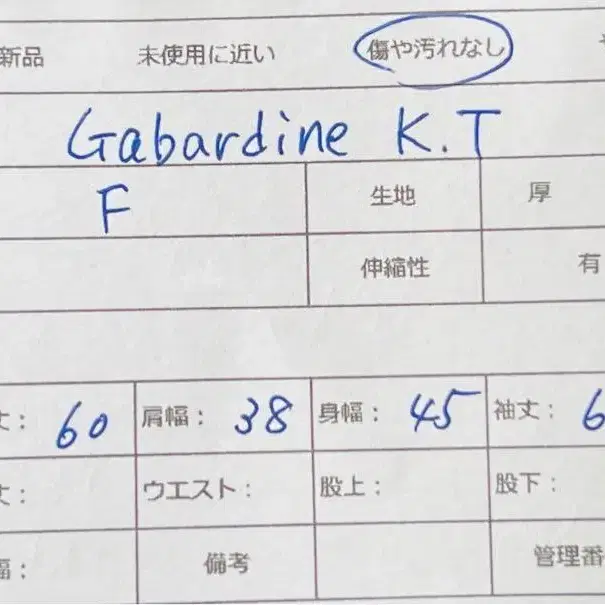 新品 未使用に近い 傷や汚れなし
Gabardine K.T
F 生地 厚
伸縮性 有
丈: 60 肩幅: 38 身幅: 45 袖丈: 6
丈: ウエスト: 股上: 股下:
幅: 備考 管理番